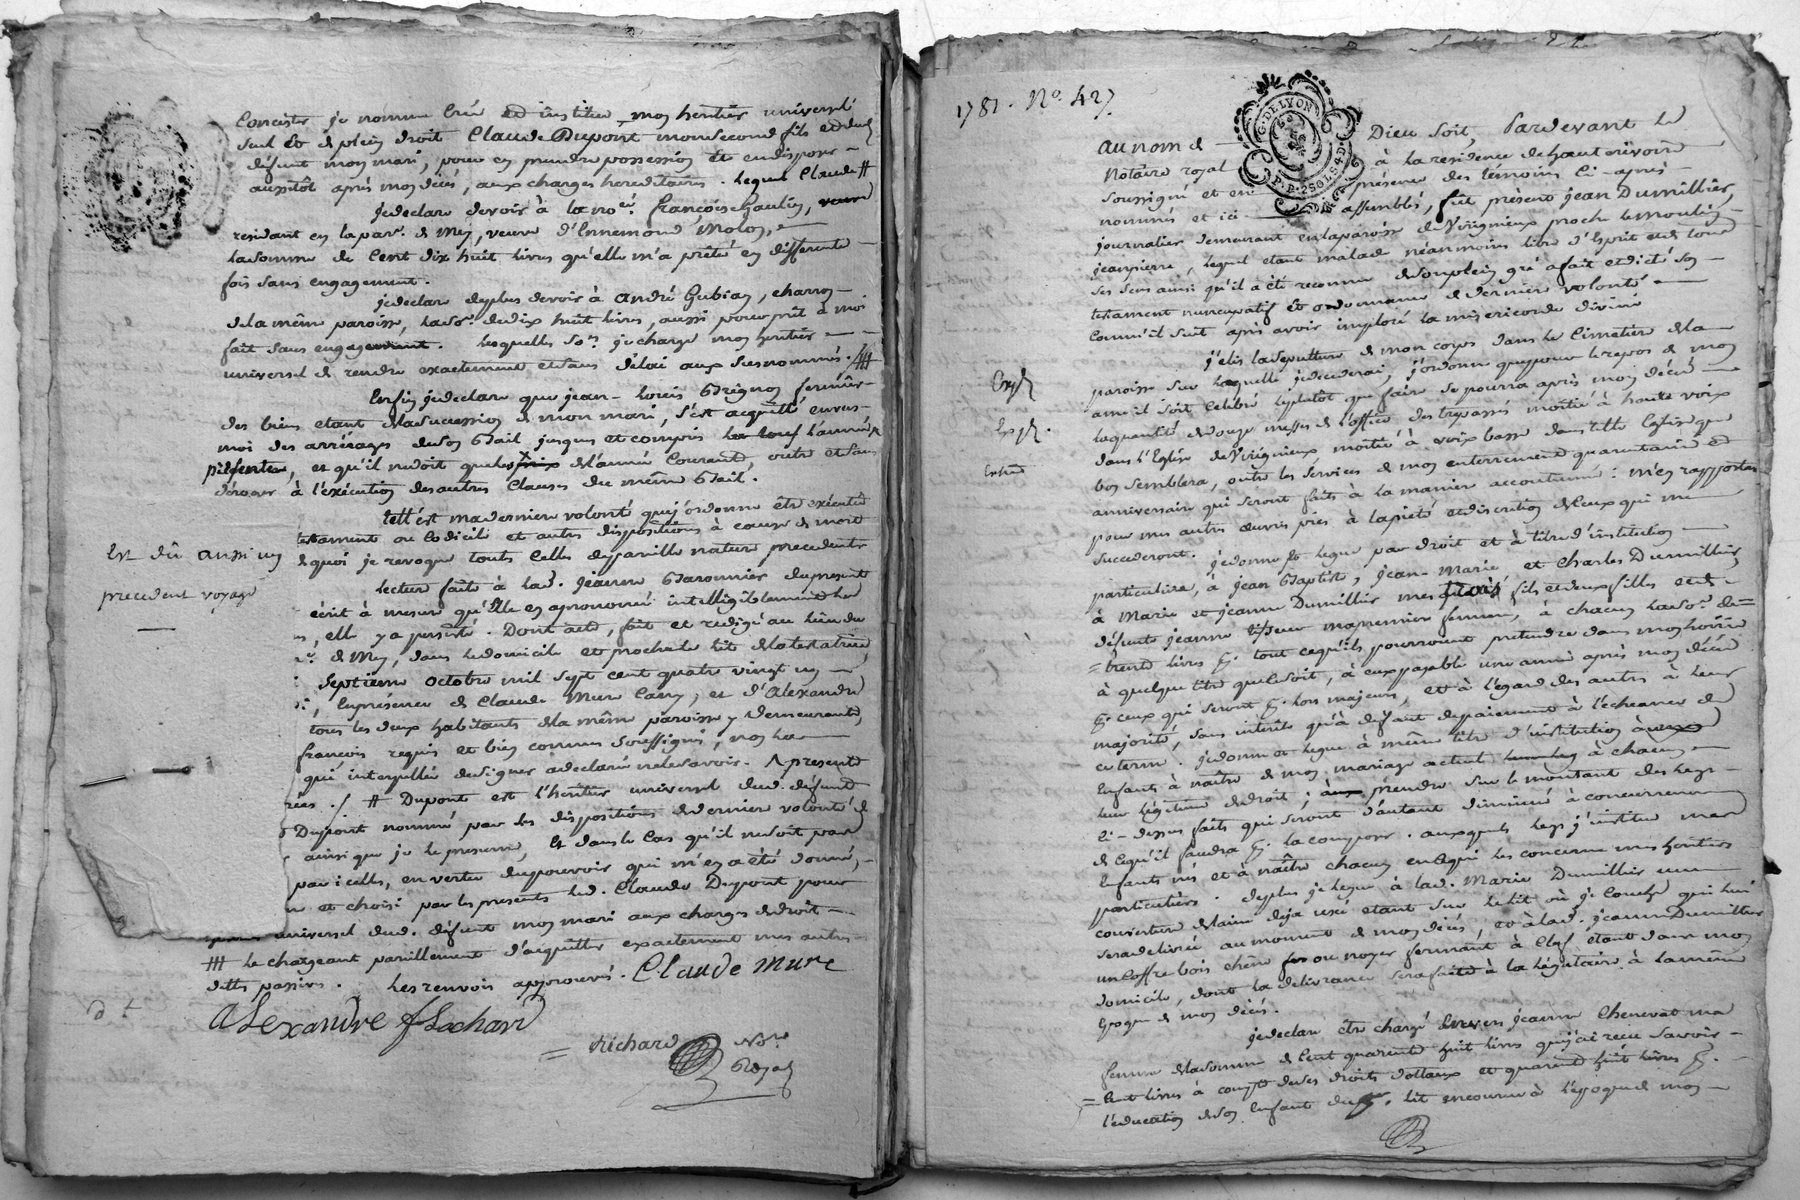 Concister je nomme Crée et institue mon heritier universel
seul et de plein droit Claude Dupont mon second fils et dud.
défunt mon mari, pour en prendre possession et en disposer
aussitôt après mon décès, aux charges hereditaires. Lequel Claude #
Je declare devoir à françoise Gaulin,
residant en la par. de Mey, veuve d'Ennemond Molon,
la somme de Cent dix huit livres qu'elle m'a prêté en differente
fois sans engagement.
je declare de plus devoir à andré Gubian, charron
de la même paroisse, la so. de dix huit livres, aussi pour prêt à moi
fait sans engagement. Lesquelles so. je charge mon heritier
universel de rendre exactement et sans délai aux susnommés. /##
Enfin je declare que jean-Louis Grignon fermier
des biens étant de la succession de mon mari, s'est acquitté envers
moi des arrérages de son Bail jusques et compris l'année
présente, et qu'il ne doit que les de l'année Courante, outre et sans
déroger à l'exécution des autres Clauses du même Bail.
telle est ma derniere volonté que j'ordonne être exécutée
testament ou Codicile et autres dispositions à cause de mort
de quoi je revoque toutes Celles de pareille nature precedente
Est dû aussi un
precedent voyage
Lecture faite à lad. jeanne Baronnier du present
écrit à mesure qu'elle en a prononcé intelligiblement
, elle y a persisté. Dont acte, fait et redigé au lieu de
de Mey, dans le domicile et proche le lit de la testatrice
septieme octobre mil sept cent quatre vingt un
, En présence de Claude Mure et d'Alexandre
tous les deux habitants de la même paroisse y demeurants,
françois requis et bien connus soussignés, non la
qui interpellée de signer a declaré ne le savoir. ^ presente
./ # Dupont est l'heritier universel dud. défunt
Dupont nommé par les dispositions de derniere volonté de
ainsi que je le presume, Et dans le Cas qu'il ne soit pas
par icelles, en vertu du pouvoir qui m'en a été donné,
et choisi par les presentes led. Claude Dupont pour
universel dud. défunt mon mari aux charges de droit
## le chargeant pareillement d'acquitter exactement mes autres
dettes passives. Les renvois approuvés. Claude Mure
alexandre flachard
= Richard No.re
Royal
1781. No. 427.
G. D. LYON
P. P. 2 SOLS. 4 D.
au nom de Dieu soit, Pardevant le
Notaire royal à la residence de haut rivoire
soussigné et en présence des temoins Ci-après
nommés et ici assemblés, fût présent jean Dumillier,
journalier demeurant en la paroisse de Virigneux proche le moulin
jeanpierre, lequel etant malade néanmoins libre d'esprit et de tous
ses sens ainsi qu'il a été reconnu de son plein gré a fait et dicté son
testament nuncupatif et ordonnance de derniere volonté
Comm'il suit après avoir imploré la misericorde divine
j'elis la sepulture de mon corps dans le Cimetiere de la
paroisse sur laquelle je decederai, j'ordonne que pour le repos de mon
ame il soit Celebré le plutôt que faire se pourra après mon décès
la quantité de douze messes de l'office des trepassés moitié à haute voix
dans l'Eglise de Virigneux, moitié à voix basse dans telle Eglise que
bon semblera, outre les services de mon enterrement quarantaine et
anniversaire qui seront faits à la maniere accoutumée : m'en rapportant
pour mes autres œuvres pies à la pieté et discretion de Ceux qui me
succederont. je donne et legue par droit et à titre d'institution
particuliere, à jean Baptiste, jean-Marie et Charles Dumillier,
à Marie et jeanne Dumillier mes trois fils et deux filles et de
défunte jeanne ma premiere femme, à chacun la so. de
= trente livres p. tout ce qu'ils pourroient pretendre dans mon hoirie
à quelque titre que ce soit, à eux payable une année après mon décès
p. ceux qui seront p. lors majeurs, et à l'égard des autres à leur
majorité, sans interêts qu'à défaut de paiement à l'échéance de
ce terme. je donne et legue à même titre d'institution
Enfants à naître de mon mariage actuel à chacun
leur légitime de droit; à prendre sur le montant des legs
Ci-dessus faits qui seront d'autant diminué à concurrence
de ce qu'il faudra p. la composer. auxquels legs j'institue mes
Enfants nés et à naître chacun en ce qui les concerne mes heritiers
particuliers. de plus je legue à lad. Marie Dumillier une
couverture de laine déja usée etant sur le lit où je Couche qui lui
sera delivrée au moment de mon décès, et à lad. jeanne Dumillier
un Coffre bois chêne ou noyer fermant à Clef étant dans mon
domicile, dont la delivrance sera faite à la légataire à la même
Epoque de mon décès.
je declare être chargé Envers jeanne Chenevat ma
femme de la somme de Cent quarante huit livres que j'ai reçu savoir
= Cent livres à compte de ses droits dottaux et quarante huit livres p.
l'education de son Enfant du lit encourue à l'epoque de mon